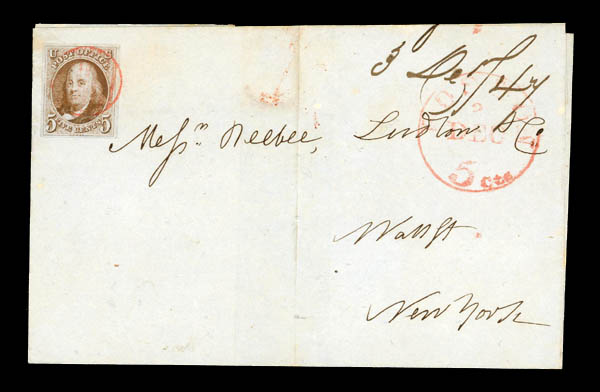 U S
POST OFFICE
5 FIVE CENTS 5
3 Dec/47
DEC
5 cts
Messrs Beebee, Ludlow & Co
Wall St
New York